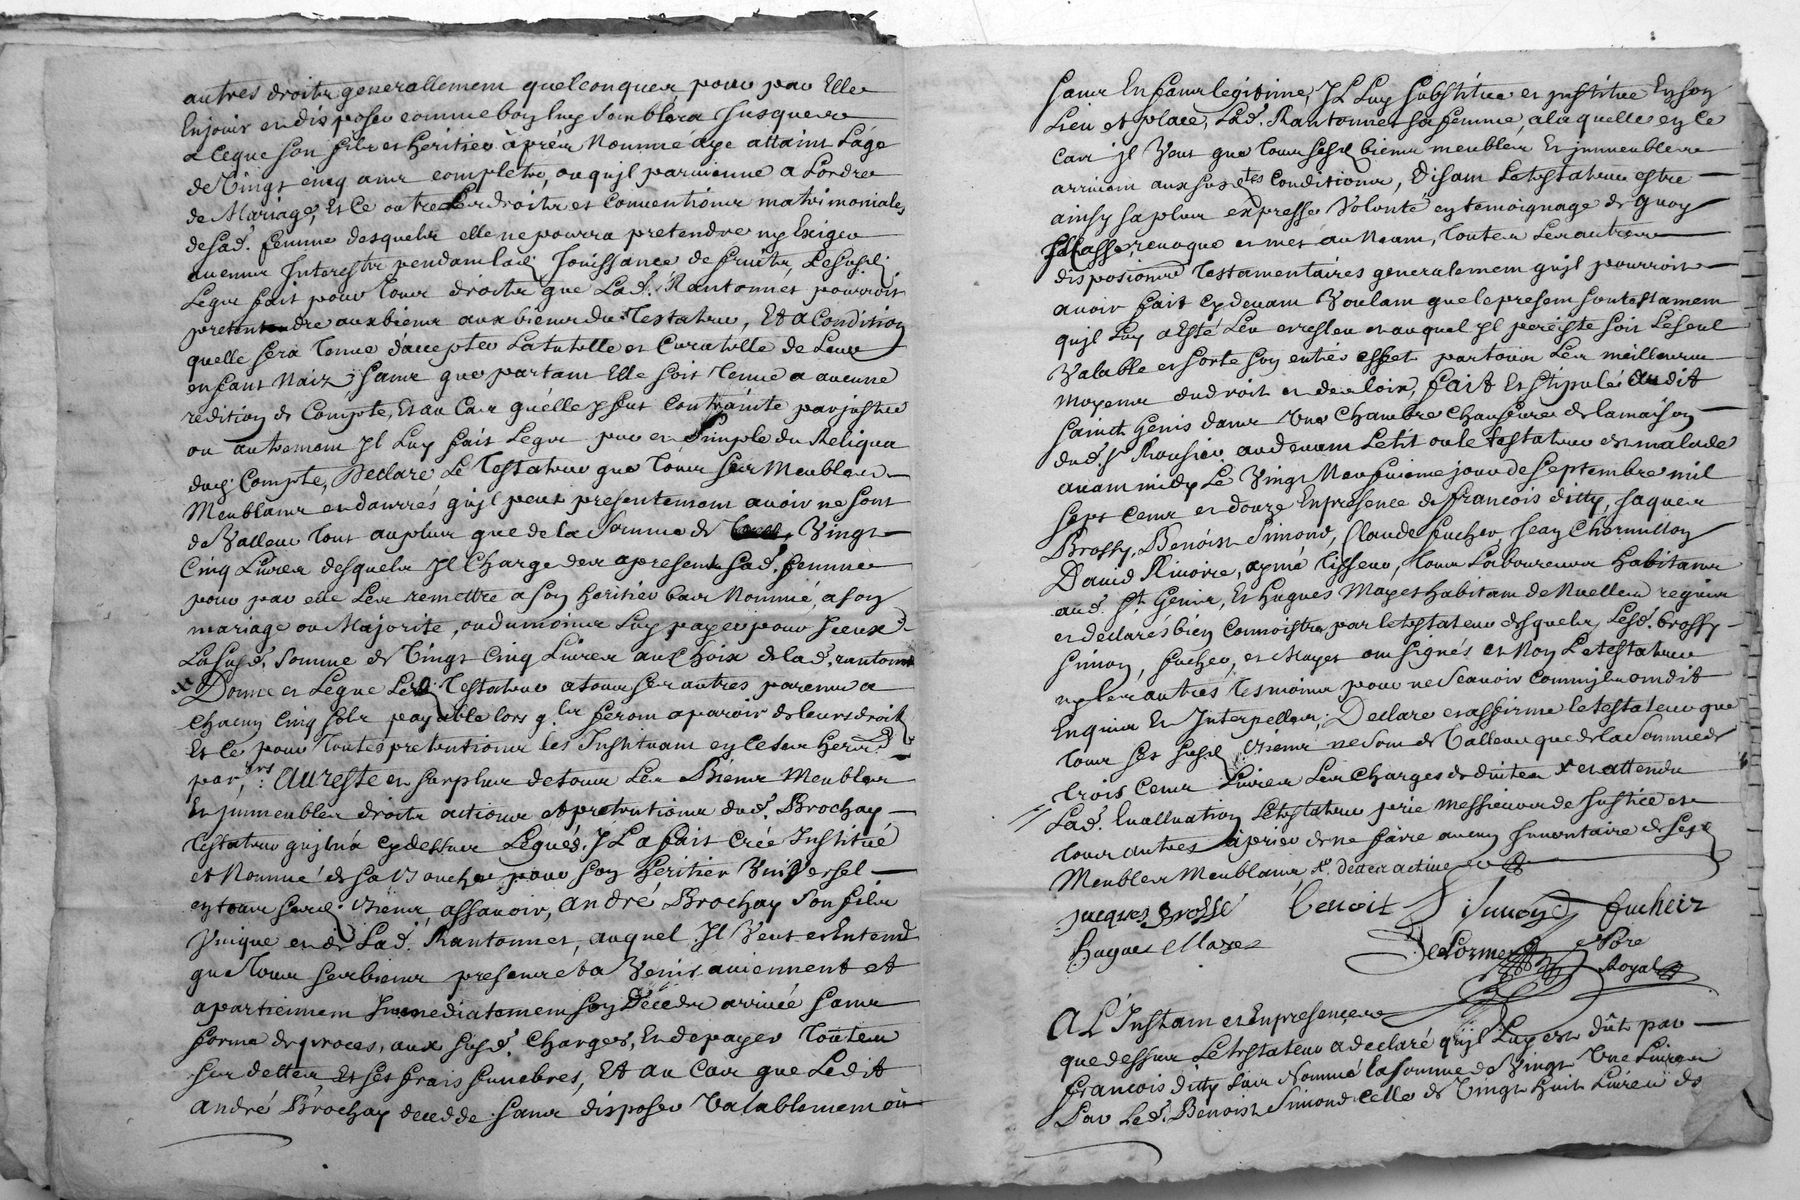 autres droits generallement quelconques pour par Elle
En jouir en disposer comme bon luy semblera jusques
a ce que son fils et heritier à prèès Nommé aye attaint l'age
de Vingt cinq ans completes, ou qu'jl parvienne a l'ordre
de Mariage, Et Ce outre les droits et conventions matrimoniales
de sad. femme desquels elle ne pourra pretendre ny Exiger
aucuns Interests pendant lad. Jouissance de fruits, Le susd.
Legat fait pour tous droits que Lad. Rantonnet pourroit
pretendre aux biens aux biens du Testateur, Et a Condition
quelle sera tenue daccepter La tutelle et Curatelle de Leur
enfant Naiz sans que partant Elle soit tenue a aucune
redition de Compte, Et au Cas quelle y fut contrainte par justice
ou autrement jl Luy fait Legat pur et simple du Reliqua
dud. Compte, Declare Le Testateur que tous ses Meubles
Meublans et danrrés qu'jl peut presentement avoir ne sont
de Valleur tout au plus que de la somme de Vingt
Cinq Livres desquels jl charge des apresent sad. femme
pour par elle les remettre a son heritier bas Nommé, a son
mariage ou Majorité, ou du moins Luy payer pour jceux
La susd. somme de Vingt Cinq Livres au Choix de lad. rantonnet
x Donne et Legue Led. Testateur a tous ses autres parens a
chacun Cinq sols payable lors q. ils feront aparoir de leurs droits
Et Ce pour toutes pretentions les Instituant en ce ses herit.
par.ers : Au reste et surplus de tous Les Biens Meubles
Et jmmeubles droits actions et pretentions dud. Brochay
Testateur qu'jl n'á cy dessus Légués, JL a fait crée Institué
et Nommé de sa Bouche pour son heritier Vniversel
en tous sesd. Biens, assavoir, André Brochay son fils
Vnique et de Lad. Rantonnet, auquel jl Veut et Entend
que tous ses biens presens et a Venir aviennent et
apartiennent Immediatement son Décéds arrivée sans
forme de proces, aux susd. Charges, En de payer toutes
ses dettes Et ses frais funebres, Et au Cas que Ledit
André Brochay decedde sans disposer Valablement ou
sans Enfans legitime, JL Luy substitue et jnstitue En son
Lieu et place, Lad. Rantonnet sa femme, a laquelle en Ce
Cas jl Veut que tous sesd. biens meubles Et jmmeubles
arrivent aux susd.tes Conditions, Disant Le testateur estre
ainsy sa plus expresse Volonté en temoignage de quoy
jl Casse, revoque et met au Neant, toutes Les autres
disposions Testamentaires generalement qu'jl pourroit
avoir fait cy devant Voulant que le present son testament
qu'jl Luy a Esté Leu et releu et auquel jl persiste soit Le seul
Valable et sorte son entier effet par tous Les meilleurs
moyens du droit et des loix, fait Et stipulé Audit
sainct Genis dans Une Chambre Chauferée de la maison
dud. Sr Rousier au devant Le lit ou le testateur est malade
avant midy Le Vingt Neufvieme jour de septembre mil
sept Cens et douze En presence de francois ditty, jaques
Brossy, Benoist Simond, Claude fucher, Jean Chormillon
David Rivoire, aymé tisseur, tous Laboureurs habitans
aud. St. Genis, Et hugues Mayet habitant de Nuelleu requis
et declarés bien Connoistre par le testateur desquels, Lesd. brossy
simon, fucher, et Mayet ont signés et Non Le testateur
ny les autres tesmoins pour ne Scavoir comm'jls ont dit
Enquis Et Interpellez, Declare et affirme le testateur que
tous ses susd. Biens ne sont de Valleur que de la somme de
trois Cens Livres Les Charges deduites x et attendu
Lad. Evalluation Le testateur prie Messieurs de Justice et
tous autres a prier de ne faire aucun Jnventaire de sesd.
Meubles Meublans, x. dettes actives
jacques Brosse benoit Simond fucheir
hugues Mayet Delorme Nore
Royal
A L'Instant et En presence
que dessus Le testateur a declaré qu'jl Luy est dût par
francois ditty sus Nommé la somme de Vingt Une Livres
Par Led. Benoist Simond Celle de Vingt huit Livres de